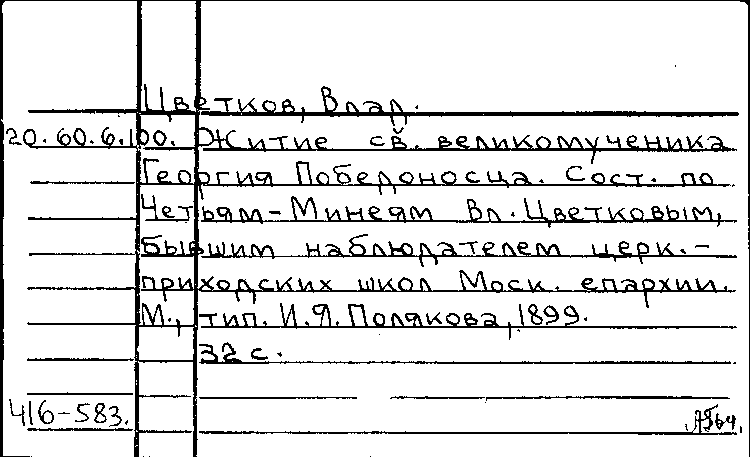 Цветков, Влад.
20.60.6.100. Житие св. великомученика
Георгия Победоносца. Сост. по
Четьям-Минеям Вл. Цветковым,
бывшим наблюдателем церк.-
приходских школ Моск. епархии.
М., тип. И.Я. Полякова, 1899.
32 с.
416-583.